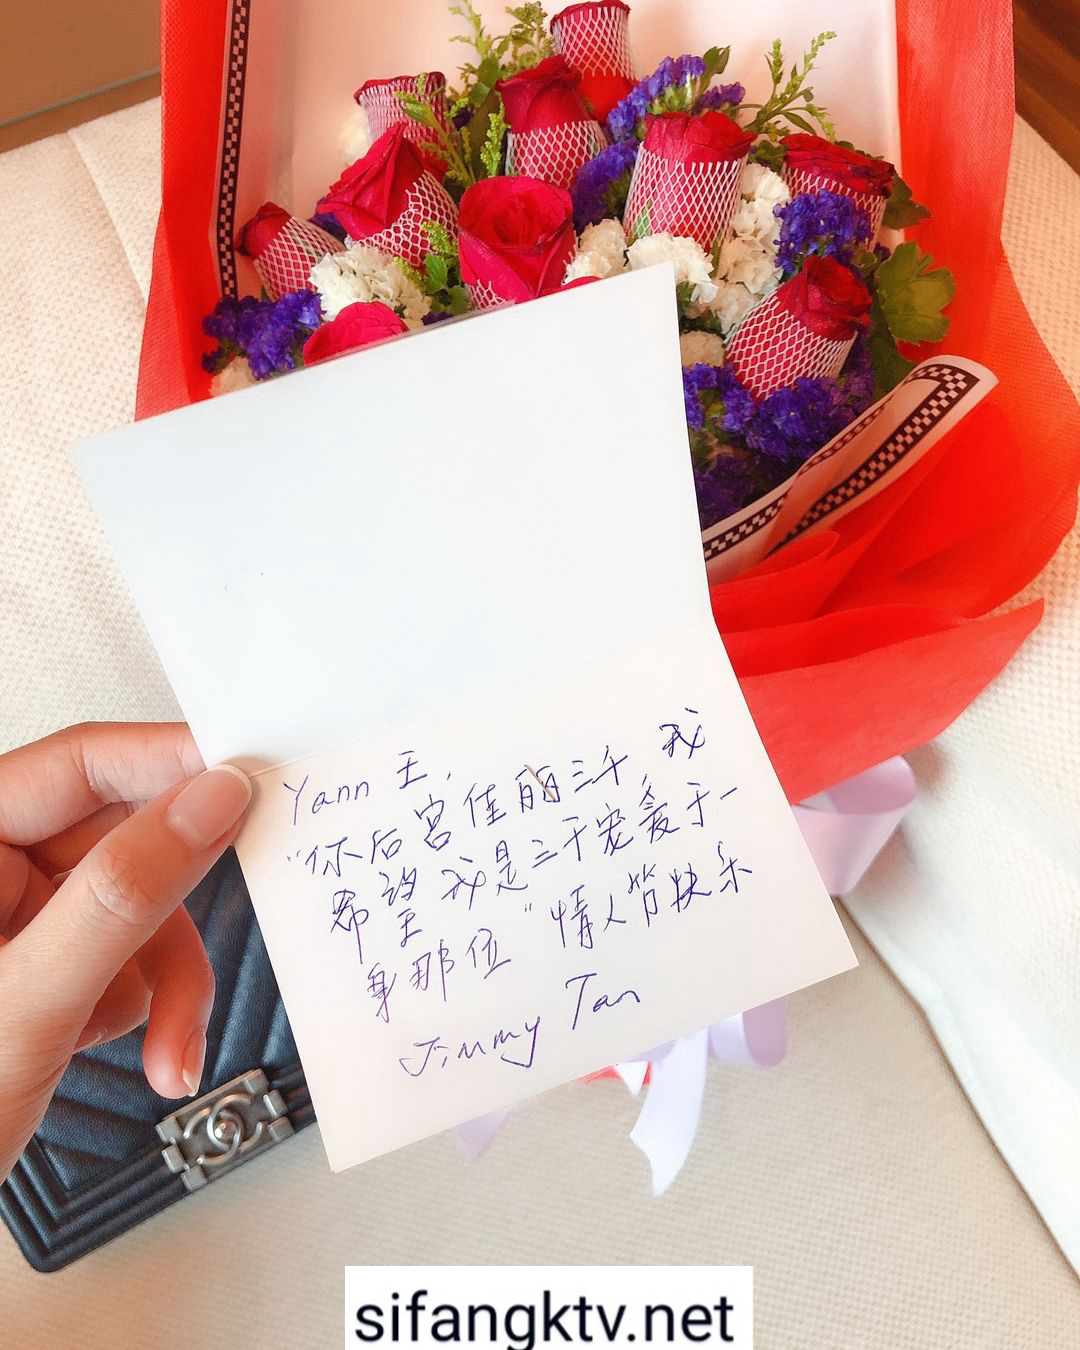 Yann 王,
"你后宫佳丽三千 我
希望我是三千宠爱于一
身那位" 情人节快乐
Jimmy Tan
sifangktv.net